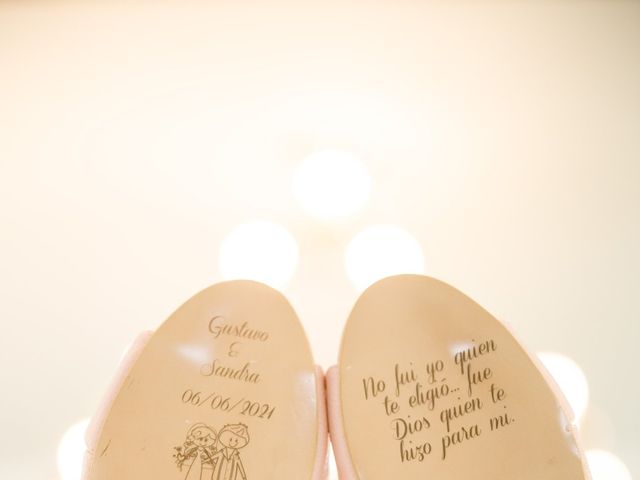 Gustavo
&
Sandra
06/06/2021
No fui yo quien
te eligió... fue
Dios quien te
hizo para mi.